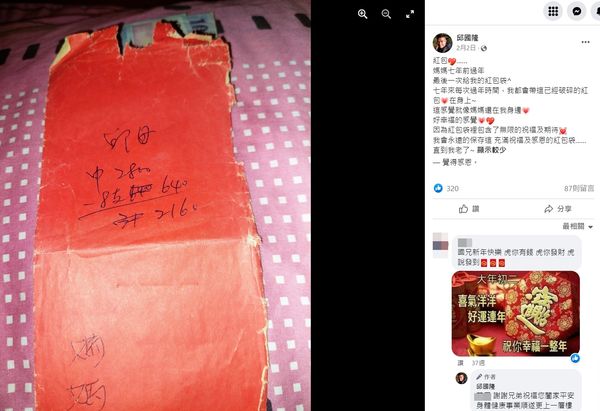 邱母
中2800
640
計2160
媽
媽
邱國隆
2月2日
紅包💖......
媽媽七年前過年
最後一次給我的紅包袋^
七年來每次過年時間、我都會帶這已經破碎的紅
包💗在身上~
這感覺就像媽媽還在我身邊💗
好幸福的感覺💗💖
因為紅包袋裡包含了無限的祝福及期待
我會永遠的保存這 充滿祝福及感恩的紅包袋.....
直到我老了~ 顯示較少
— 覺得感恩。
320
87則留言
讚
分享
最相關
國兄新年快樂 虎你有錢 虎你發財 虎
說發到🧧🧧🧧
大年初二
喜氣洋洋
好運連年
祝你幸福一整年
讚 37週
作者
邱國隆
謝謝兄弟祝福您闔家平安
身體健康事業順遂更上一層樓